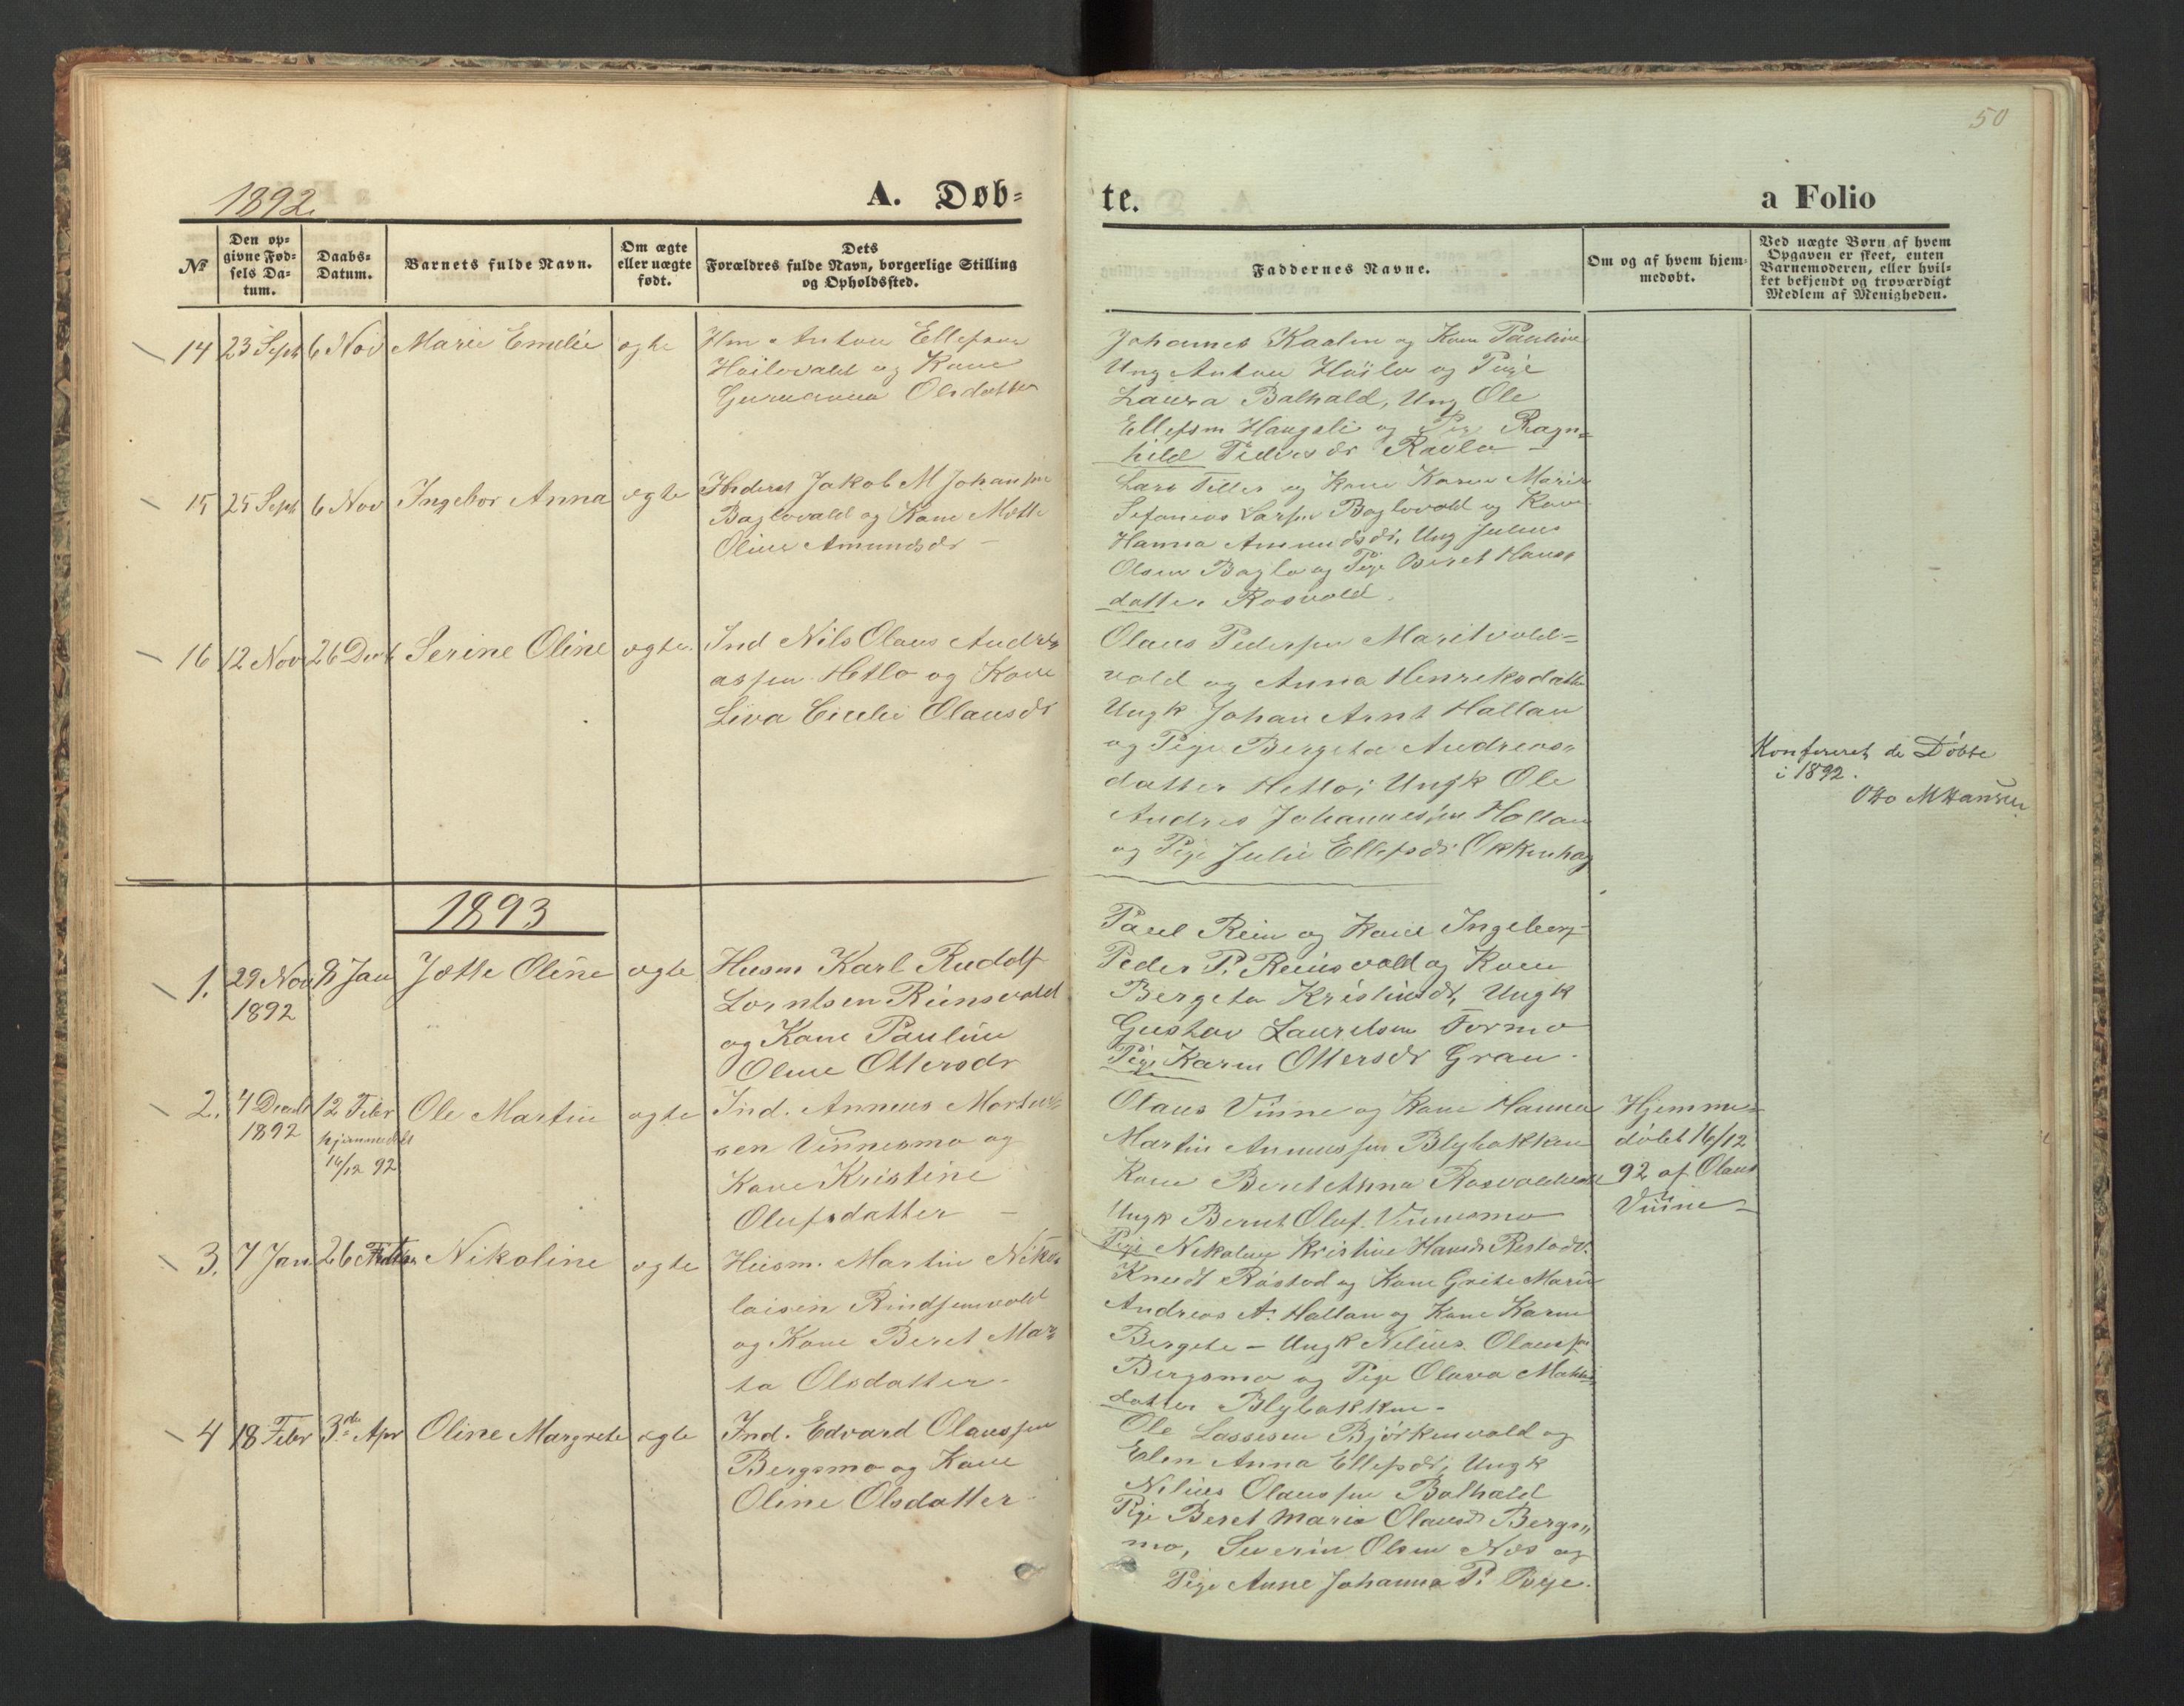 50
1892.
A. Døb=
te.
a Folio
№
Den op=
givne Fød=
sels Da=
tum.
Daabs=
Datum.
Barnets fulde Navn.
Om ægte
eller uægte
født.
Dets
Forældres fulde Navn, borgerlige Stilling
og Opholdssted.
Faddernes Navne.
Om og af hvem hjem=
medøbt.
Ved uægte Børn af hvem
Opgaven er skeet, enten
Barnemoderen, eller hvil=
ket bekjendt og troværdigt
Medlem af Menigheden.
14 23 Sept 6 Nov Marie Emelie ægte
Hm Anton Ellefsen
og Kone
Olsdatter
Johannes Kaalen og Kone Pauline
Ung Anton Høilo og Pige
Laura Balhald, Ung Ole
Ellefsen Haugsli og Pige Ragn=
hild Pedersdr Ravlo
15 25 Sept 6 Nov Ingebor Anna ægte
Jakob M Johansen
Baglovald og Kone Mette
Oline Amundsdr -
Lars Tiller og Kone Karen Marie
Larsen Baglovald og Kone
Hanna Amundsdr, Ung Julius
Olsen Baglo og Pige Beret Hans
datter Rosvold.
16 12 Nov 26 Decb Serine Oline ægte.
Ind Nils Olaus Andre
assen Hetlo og Kone
Liva Olausdr
Olaus Pedersen Maritvold=
vold og Anna Henriksdatter
Ungk Johan Arnt Hallan
og Pige Bergeta Andreas„
datter Hetlo; Ungk Ole
Andres Johannessen Hallan
og Pige Julie Ellefsdr Okkenhog
Konfereret de Døbte
i 1892.
Otto M Hansen
1893
1. 29 Nov 8 Jan Jette Oline ægte
1892
Husm Karl Rudolf
Lorntsen Reinsvald
og Kone Pauline
Oline Ottersdr
Paul Rein og Kone Ingeborg
Peder P. Reinsvald og Kone
Bergeta Kristinsdr, Ungk
Gustav Lauritsen Formo
Pige Karen Ottersdr Gran.
2. 4 Decemb 12 Febr Ole Martin ægte
1892 hjemmedøbt
16/12 92
Ind. Anneus Morten
sen Vinnesmo og
Kone Kristine
Olufsdatter -
Olaus Vinne og Kone Hanna
Martin Anneussen Blybakken
Kone Beret Anna Rosvoldvald
Ungk Bernt Oluf Vinnesmo
Pige Nekoline Kristine Hansdr Restad.
Hjemme=
døbt 16/12
92 af Olaus
Vinne -
3. 7 Jan 26 Febr Nikoline ægte
Husm. Martin Niko
laisen Rindsemvald
og Kone Beret Mar
ta Olsdatter.
Knudt Røstad og Kone Grete Marie
Andreas A. Hallan og Kone Karen
Bergete - Ungk Nelius Olaussen
Bergsmo og Pige Olava
datter Blybakken -
4 18 Febr 3die Apr Oline Margrete ægte
Ind. Edvard Olaussen
Bergsmo og Kone
Oline Olsdatter
Ole Lassesen Bjørkenvald og
Elen Anna Ellefsdr, Ungk
Nilius Olaussen Balhald
Pige Beret Maria Olausdr Bergs„
mo, Severin Olsen Næs og
Pige Anne Johanna P. Bye.